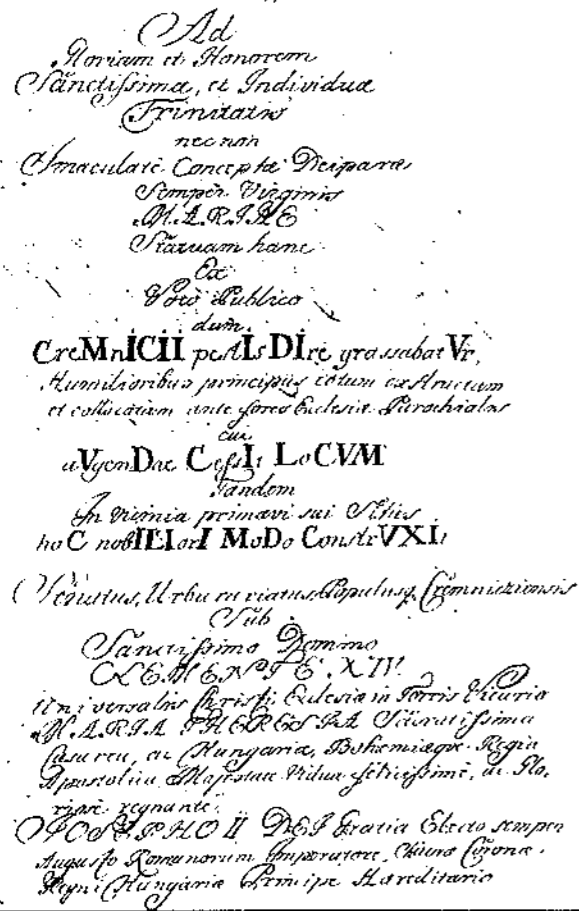 Ad
Gloriam et Honorem
Sanctissimæ, et Individuæ
Trinitatis
nec non
Imaculatè Conceptæ Deiparæ
Semper Virginis
MARIAE
Statuam hanc
Ex
Voto Publico
dum
CreMnICII pestIs DIre grassabatVr,
Humilioribus principiis totum exstructum
et collocatam ante fores Eclesiæ Parochialis
cui
aVgenDae CessIt LoCVM
Tandem
In vicinia primævi sui Sitûs
hoC nobILIorI MoDo ConstrVXIt
Senatus, Urbu Populusq Cremniziensis
Sub
Sanctissimo Domino
CLEMENTE XIV.
Universalis Christi Eclesiæ in Terris Vicario
MARIA THERESIA Sacratissima
Cæsarea, ac Hungariæ, Bohemiæque Regia
Apostolica Majestate Vidua felicissimè, ac Glo-
riosè regnante.
IOSEPHO II DEI Gratia Electo semper
Augusto Romanorum Imperatore, Coronæ.
Regni Hungariæ Principe Hæreditario